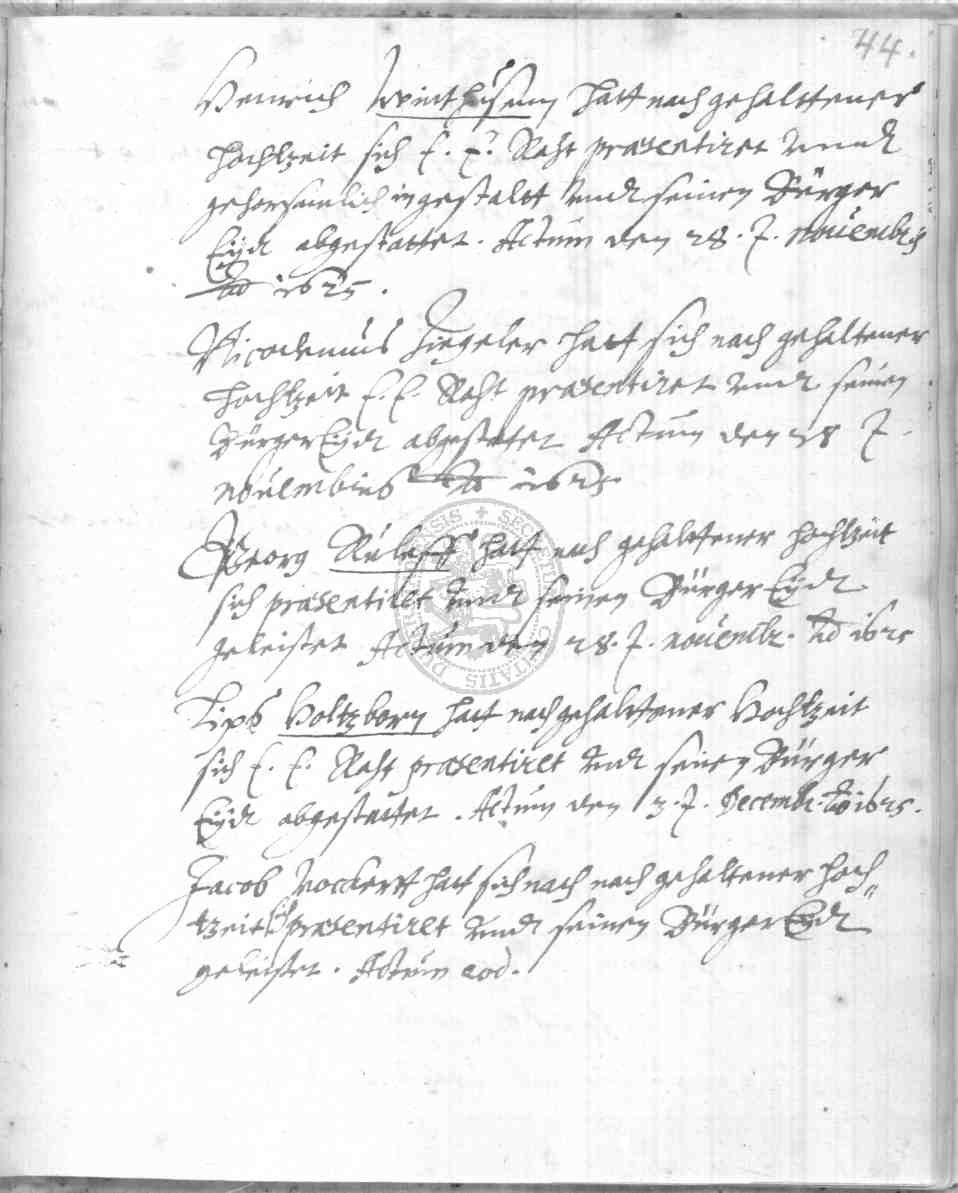 44.
Henrich Winthusenn hatt nach gehalttener
Hochtzeit sich E. E. Raht præsentiret unndt
gehorsamlich ingestalt undt seinen Bürger
Eydt abgestattet. Actum den 28. t. Novembris
Ao 1625.
Nicodemus Ziegeler hatt sich nach gehaltener
Hochtzeit E. E. Raht præsentiret unndt seinen
BürgerEydt abgestatet Actum den 28 t.
Novembris Ao 1625.
Georg Ruleff hatt nach gehalttener Hochtzeit
sich præsentiret unndt seinen BürgerEydt
geleistet Actum den 28. t. Novembr. Ao 1625
Lips Holtzborn hatt nach gehalttener Hochtzeit
sich E. E. Raht præsentiret undt seinen Bürger
Eydt abgestattet. Actum den 3. t. Decembr. Ao 1625.
Jacob Vockertt hatt sich nach nach gehaltener Hoch
tzeit præsentiret undt seinen BürgerEydt
geleistet. Actum eod.
SECRET CIVITATIS DU